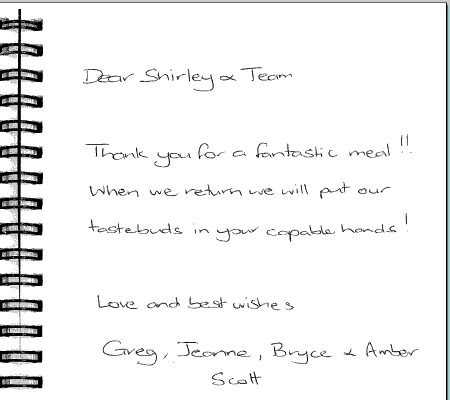 Dear Shirley & Team
Thank you for a fantastic meal!!
When we return we will put our
tastebuds in your capable hands!
Love and best wishes
Greg, Jeanne, Bryce & Amber
Scott